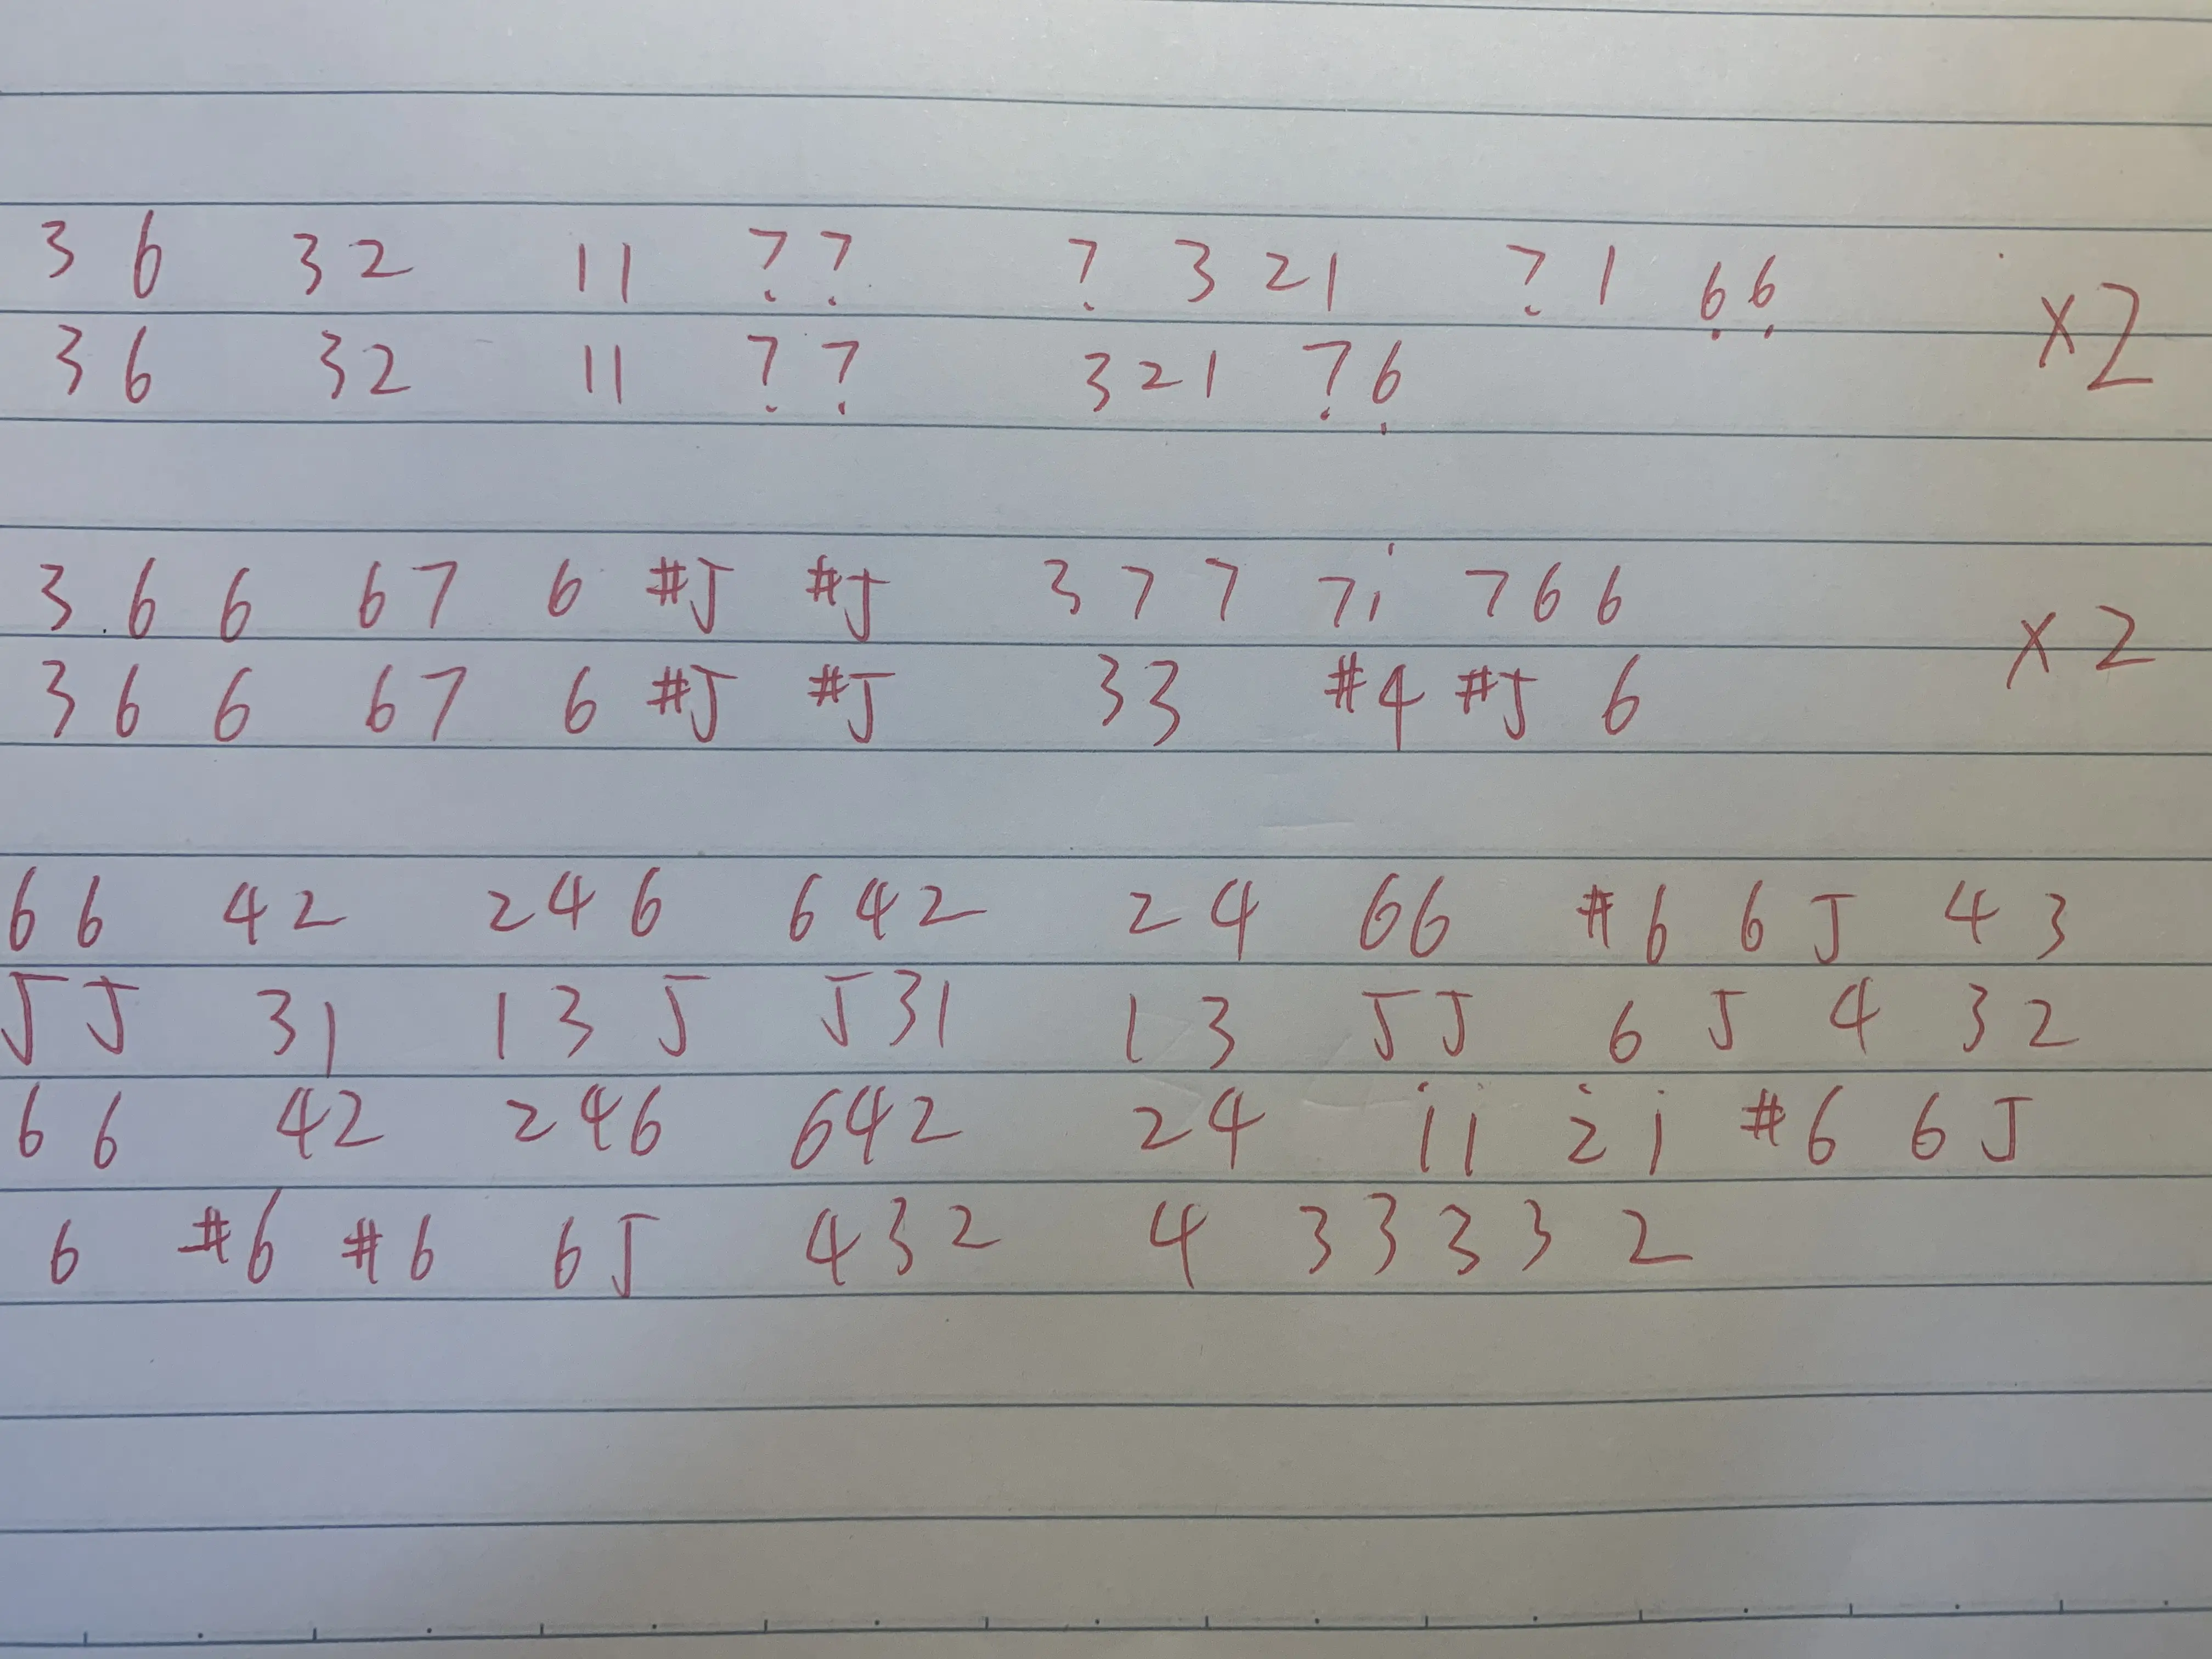 3 6 32 11 7̣7̣ 7̣ 3 21 7̣ 1 6̣6̣
×2
36 32 11 7̣7̣ 321 7̣6̣
3 6 6 67 6 #5 #5 377 7i 766
×2
3 6 6 67 6 #5 #5 33 #4 #5 6
66 42 246 642 24 66 #6 6 5 4 3
55 31 135 531 13 55 6 5 4 3 2
66 42 246 642 24 i̇i̇ 2̇i̇ #6 6 5
6 #6 #6 65 432 4 3 3 3 3 2